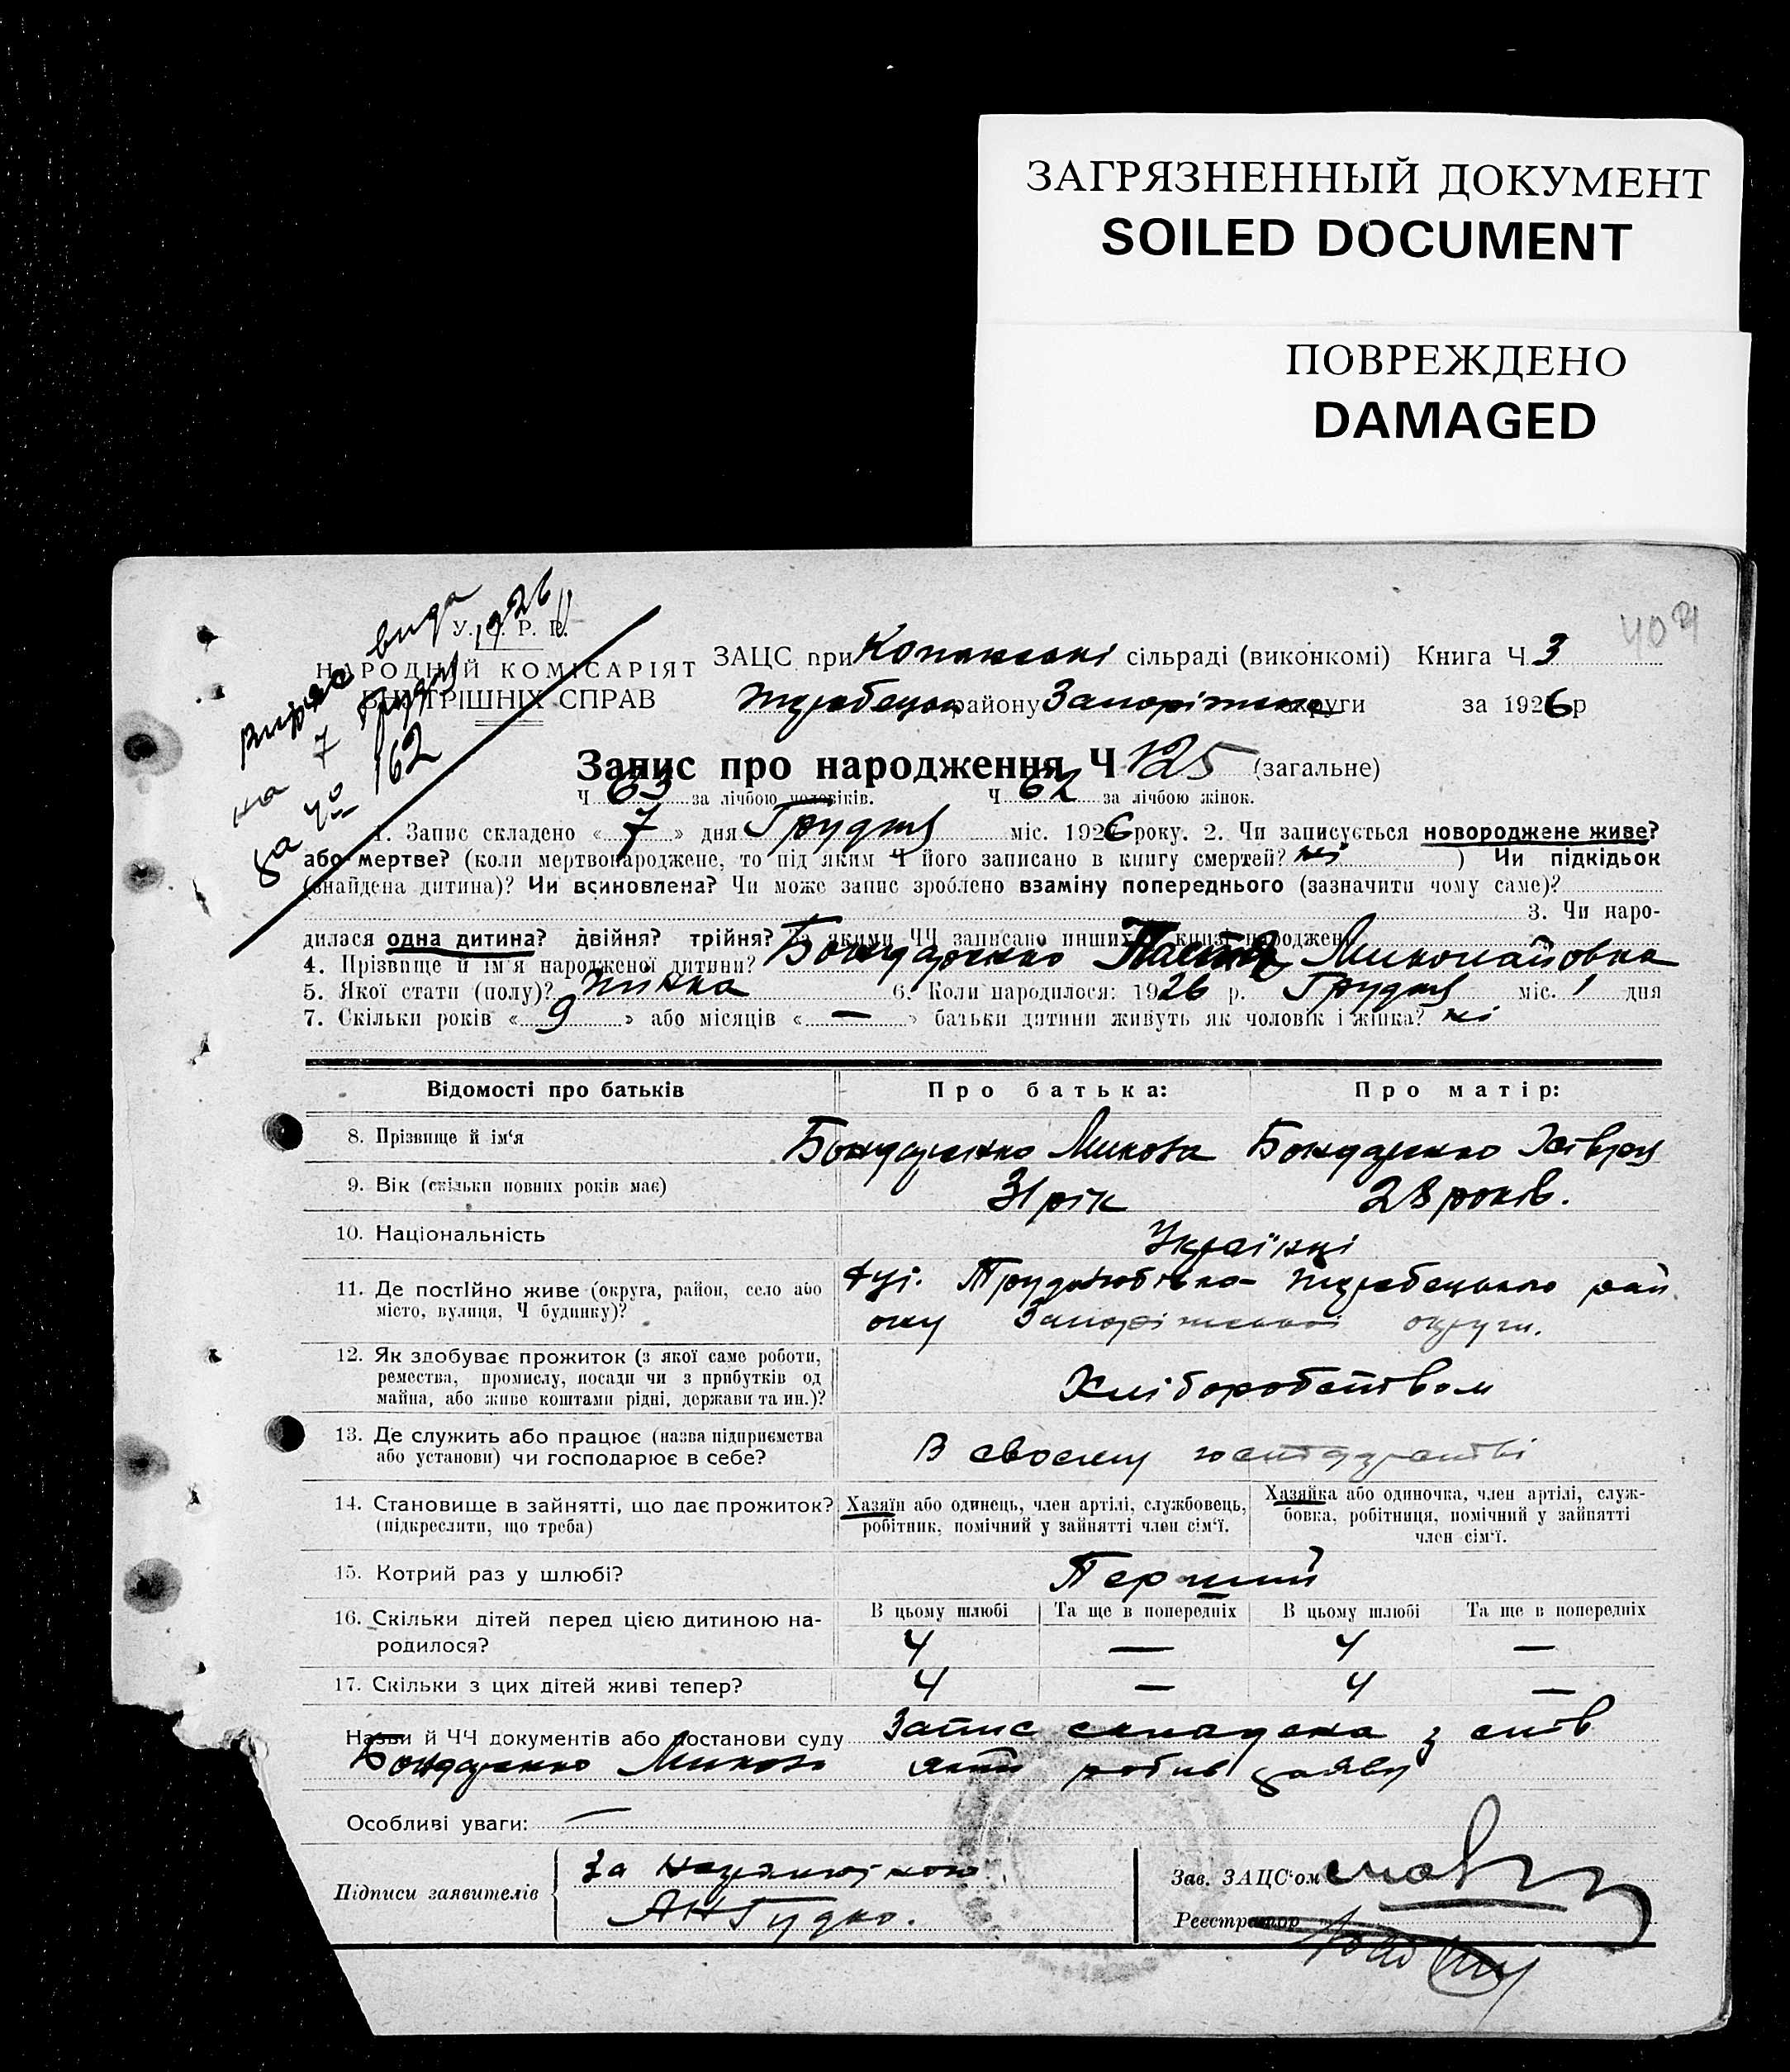 ЗАГРЯЗНЕННЫЙ ДОКУМЕНТ
SOILED DOCUMENT
ПОВРЕЖДЕНО
DAMAGED
У. С. Р. Р.
НАРОДНИЙ КОМІСАРІЯТ
ВНУТРІШНІХ СПРАВ
на 7 Грудня 1926
за № 162
ЗАЦС при Копанській сільраді (виконкомі) Книга Ч 3
району Запоріжської округи за 1926 р
Запис про народження Ч 125 (загальне)
Ч 63 за лічбою чоловіків. Ч 62 за лічбою жінок.
1. Запис складено « 7 » дня Грудня міс. 1926 року. 2. Чи записується новороджене живе?
або мертве? (коли мертвонароджене, то під яким Ч його записано в книгу смертей? ні ) Чи підкідьок
(знайдена дитина)? Чи всиновлена? Чи може запис зроблено взаміну попереднього (зазначити чому саме)?
3. Чи наро-
дилася одна дитина? двійня? трійня? За якими ЧЧ записано инших в книзі народжень
4. Прізвище й ім'я народженої дитини? Бондаренко Миколайовна
5. Якої стати (полу)? жінка 6. Коли народилося: 1926 р. Грудня міс. 1 дня
7. Скільки років « 9 » або місяців « — » батьки дитини живуть як чоловік і жінка? ні
Відомості про батьків Про батька: Про матір:
8. Прізвище й ім'я Бондаренко Микола Бондаренко Хівря
9. Вік (скільки повних років має) 31 рік 28 років.
10. Національність Українці
11. Де постійно живе (округа, район, село або Трудолюбівка району
місто, вулиця, Ч будинку)? Запоріжської округи.
12. Як здобуває прожиток (з якої саме роботи,
ремества, промислу, посади чи з прибутків од
майна, або живе коштами рідні, держави та ин.)? Хліборобством
13. Де служить або працює (назва підприємства
або установи) чи господарює в себе? В своєму господарстві
14. Становище в зайнятті, що дає прожиток?
(підкреслити, що треба)
Хазяїн або одинець, член артілі, службовець,
робітник, помічний у зайнятті член сім'ї.
Хазяйка або одиночка, член артілі, служ-
бовка, робітниця, помічний у зайнятті
член сім'ї.
15. Котрий раз у шлюбі? Перший
В цьому шлюбі Та ще в попередніх В цьому шлюбі Та ще в попередніх
16. Скільки дітей перед цією дитиною на-
родилося? 4 — 4 —
17. Скільки з цих дітей живі тепер? 4 — 4 —
Назви й ЧЧ документів або постанови суду Запис складена з слів
Бондаренко Микола який робив заяву
Особливі уваги: —
Підписи заявителів
За
АНГудко.
Зав. ЗАЦС'ом
Реєстратор